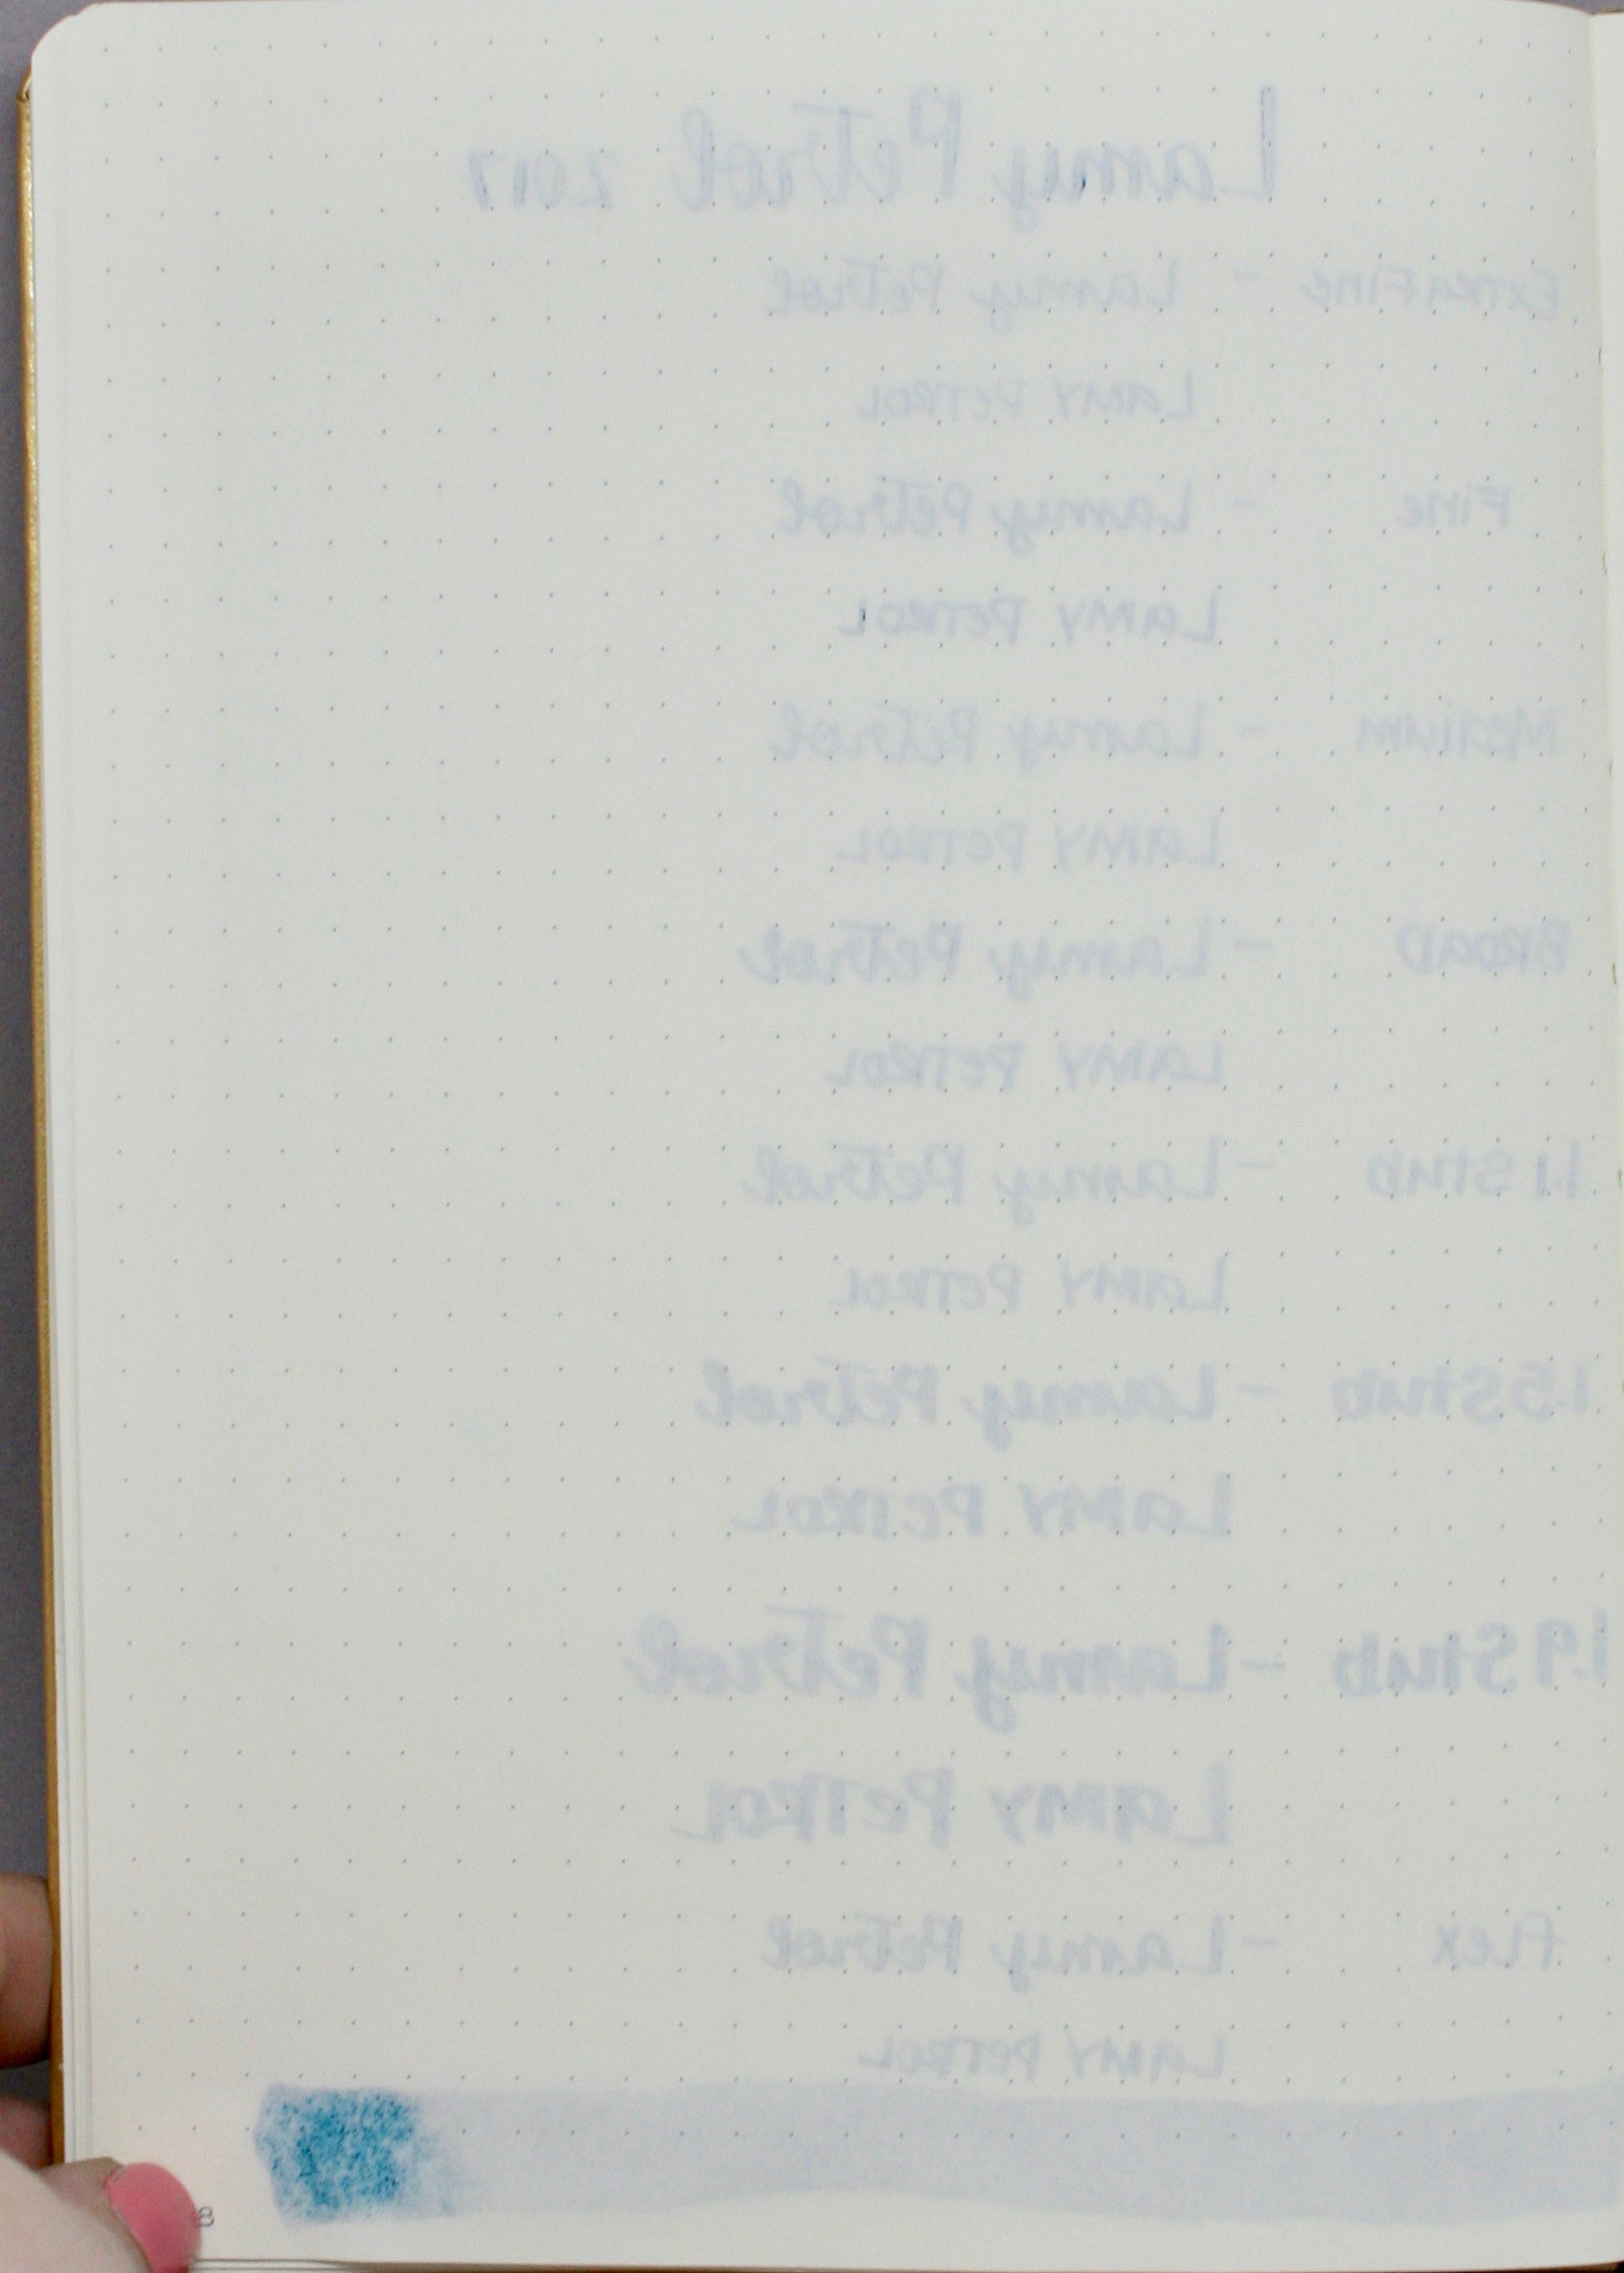 Lamy Petrol 2017
Extra Fine - Lamy Petrol
Lamy Petrol
Fine - Lamy Petrol
Lamy Petrol
Medium - Lamy Petrol
Lamy Petrol
Broad - Lamy Petrol
Lamy Petrol
1.1 Stub - Lamy Petrol
Lamy Petrol
1.5 Stub - Lamy Petrol
Lamy Petrol
1.9 Stub - Lamy Petrol
Lamy Petrol
Flex - Lamy Petrol
Lamy Petrol